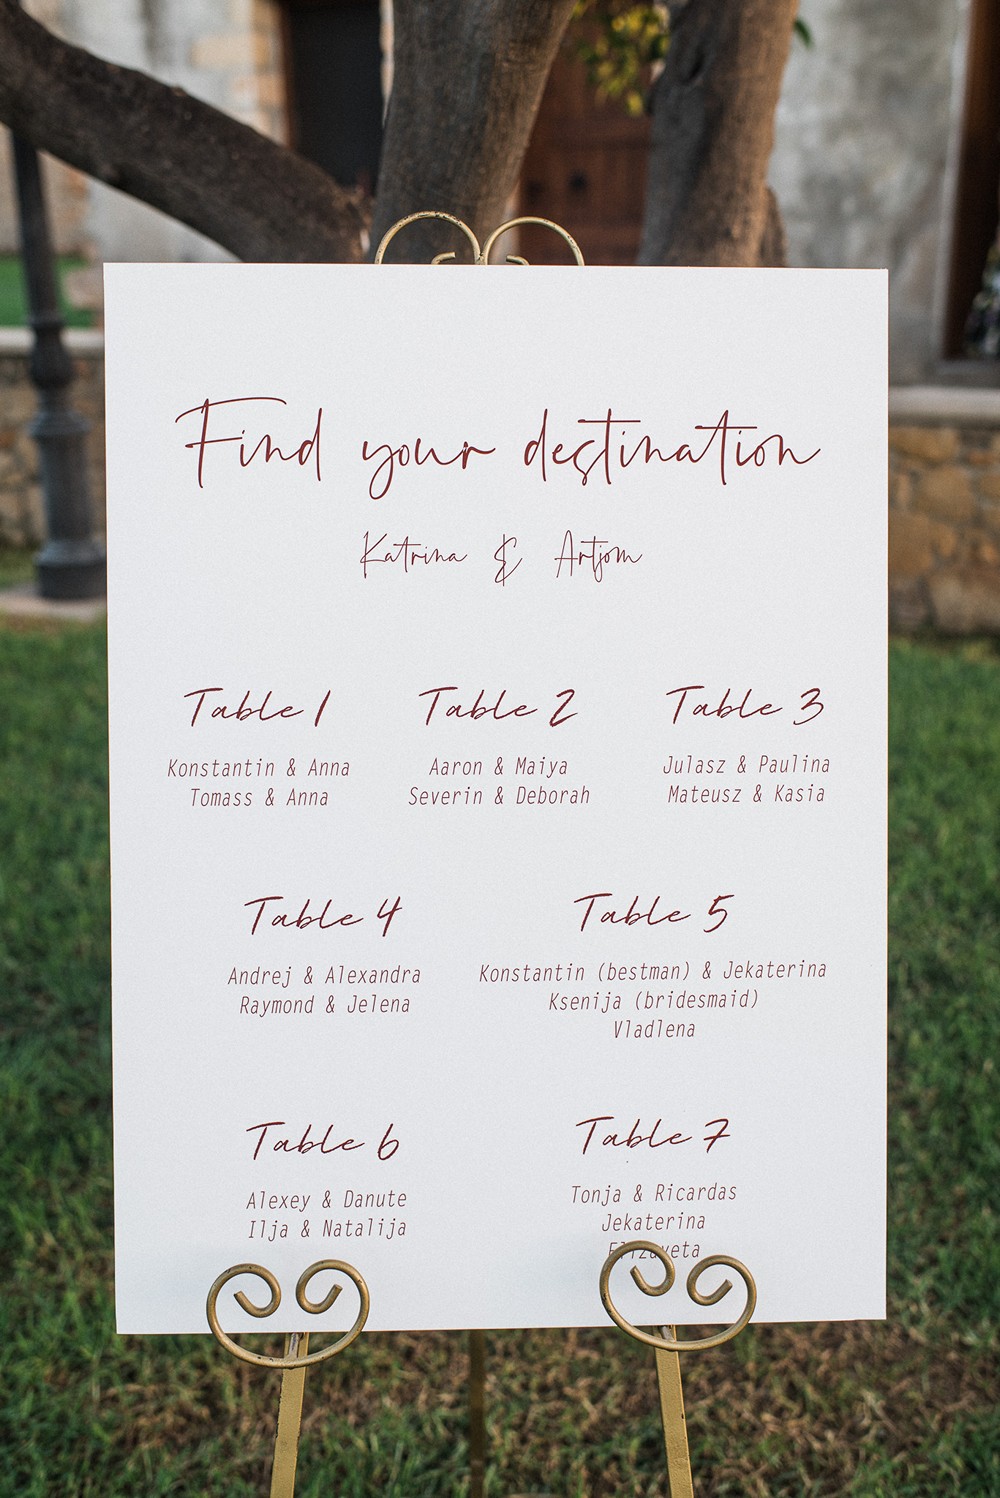 Find your destination
Katrina & Artjom
Table 1
Konstantin & Anna
Tomass & Anna
Table 2
Aaron & Maiya
Severin & Deborah
Table 3
Julasz & Paulina
Mateusz & Kasia
Table 4
Andrej & Alexandra
Raymond & Jelena
Table 5
Konstantin (bestman) & Jekaterina
Ksenija (bridesmaid)
Vladlena
Table 6
Alexey & Danute
Ilja & Natalija
Table 7
Tonja & Ricardas
Jekaterina